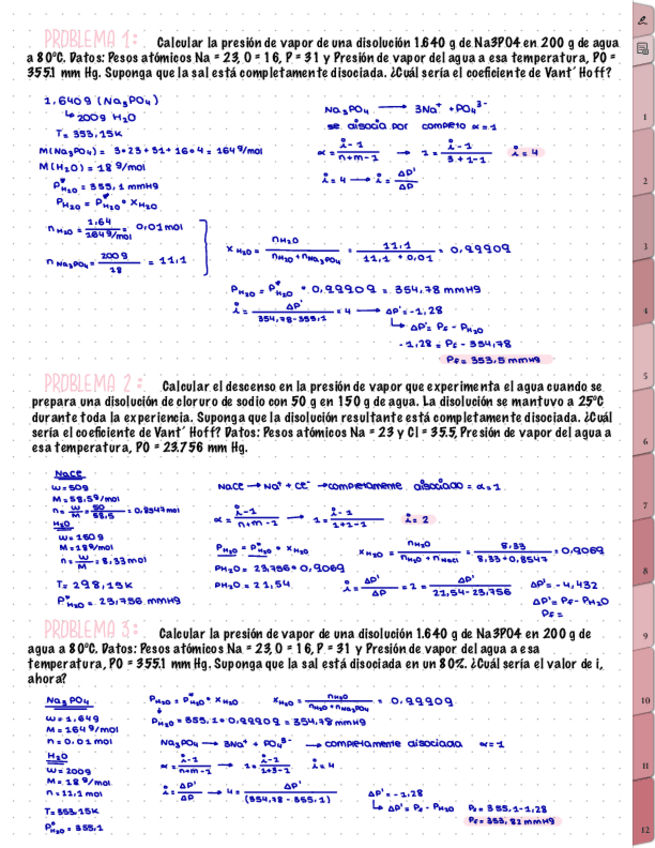 PROBLEMA 1: Calcular la presión de vapor de una disolución 1.640 g de Na3PO4 en 200 g de agua
a 80ºC. Datos: Pesos atómicos Na = 23, O = 16, P = 31 y Presión de vapor del agua a esa temperatura, P0 =
355.1 mm Hg. Suponga que la sal está completamente disociada. ¿Cuál sería el coeficiente de Vant´Hoff?
1,640g (Na₃PO₄)
↳ 200g H₂O
T = 353,15K
M(Na₃PO₄) = 3·23+31+16·4 = 164 g/mol
M(H₂O) = 18 g/mol
P*H₂O = 355,1 mmHg
PH₂O = P*H₂O · XH₂O
Na₃PO₄ → 3Na⁺ + PO₄³⁻
se disocia por completo α=1
α = i-1/n+m-1 → 1 = i-1/3+1-1 i=4
i=4 → i = ΔP'/ΔP
nH₂O = 1,64/164 g/mol = 0,01 mol
nNa₃PO₄ = 200g/18 = 11,1
XH₂O = nH₂O/nH₂O+nNa₃PO₄ = 11,1/11,1+0,01 = 0,99909
PH₂O = P*H₂O · 0,99909 = 354,78 mmHg
i = ΔP'/354,78-355,1 = 4 → ΔP' = -1,28
↳ ΔP' = Pf - PH₂O
-1,28 = Pf - 354,78
Pf = 353,5 mmHg
PROBLEMA 2: Calcular el descenso en la presión de vapor que experimenta el agua cuando se
prepara una disolución de cloruro de sodio con 50 g en 150 g de agua. La disolución se mantuvo a 25ºC
durante toda la experiencia. Suponga que la disolución resultante está completamente disociada. ¿Cuál
sería el coeficiente de Vant´Hoff? Datos: Pesos atómicos Na = 23 y Cl = 35.5, Presión de vapor del agua a
esa temperatura, P0 = 23.756 mm Hg.
NaCl
w=50g
M=58,5g/mol
n = w/M = 50/58,5 = 0,8547 mol
H₂O
w=150g
M=18g/mol
n = w/M = 8,33 mol
T = 298,15K
P*H₂O = 23,756 mmHg
NaCl → Na⁺ + Cl⁻ → completamente disociado = α=1
α = i-1/n+m-1 → 1 = i-1/1+1-1 i=2
PH₂O = P*H₂O · XH₂O
PH₂O = 23,756·0,9069
PH₂O = 21,54
XH₂O = nH₂O/nH₂O+nNaCl = 8,33/8,33+0,8547 = 0,9069
i = ΔP'/ΔP = 2 = ΔP'/21,54-23,756 ΔP' = -4,432
ΔP' = Pf - PH₂O
Pf =
PROBLEMA 3: Calcular la presión de vapor de una disolución 1.640 g de Na3PO4 en 200 g de
agua a 80ºC. Datos: Pesos atómicos Na = 23, O = 16, P = 31 y Presión de vapor del agua a esa
temperatura, P0 = 355.1 mm Hg. Suponga que la sal está disociada en un 80%. ¿Cuál sería el valor de i,
ahora?
Na₃PO₄
w=1,64g
M=164g/mol
n=0,01mol
H₂O
w=200g
M=18g/mol
n=11,1mol
T=353,15K
P*H₂O = 355,1
PH₂O = P*H₂O · XH₂O XH₂O = nH₂O/nH₂O+nNa₃PO₄ = 0,99909
PH₂O = 355,1·0,99909 = 354,78 mmHg
Na₃PO₄ → 3Na⁺ + PO₄³⁻ → completamente disociada α=1
α = i-1/n+m-1 → 1 = i-1/1+3-1 i=4
i = ΔP'/ΔP → 4 = ΔP'/(354,78-355,1) ΔP' = -1,28
↳ ΔP' = Pf - PH₂O Pf = 355,1-1,28
Pf = 353,82 mmHg
1
2
3
4
5
6
7
8
9
10
11
12